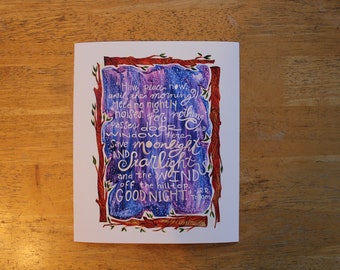 Have peace now,
until the morning!
Heed no nightly
noises! for nothing
passes DOOR
WINDOW here
save moonlight
AND Starlight
and the WIND
off the hilltop.
GOOD NIGHT!
Tolkien